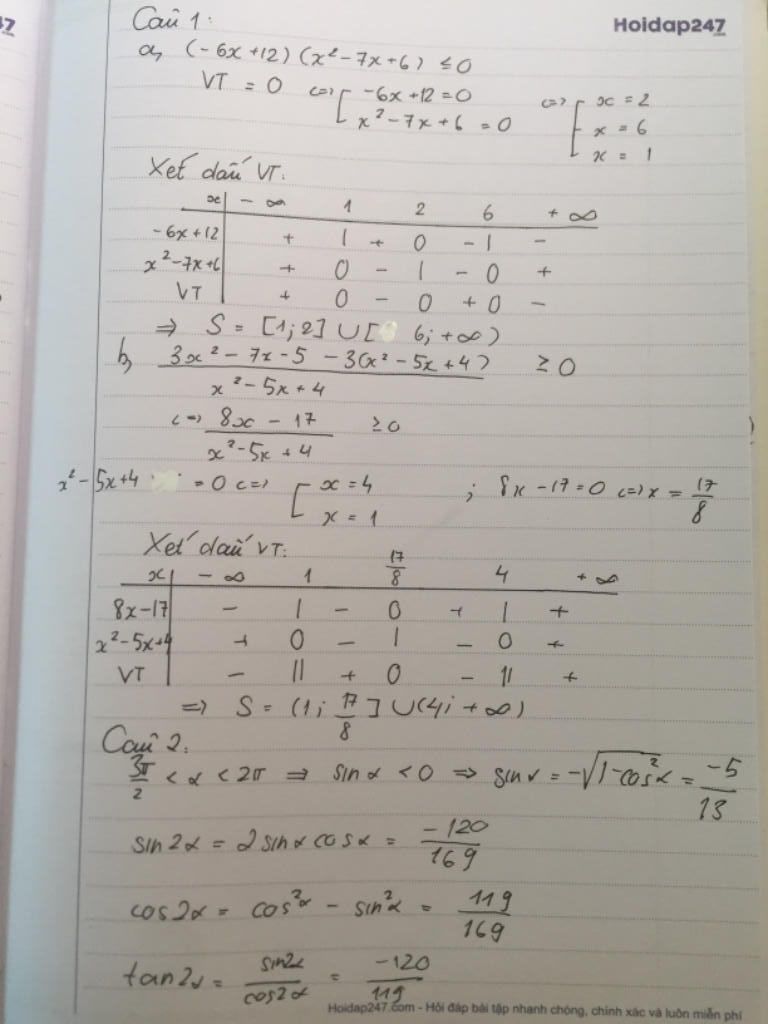 247
Hoidap247
Câu 1:
a, (-6x+12)(x² - 7x+6) ≤ 0
VT = 0 <=> [ -6x+12 = 0 <=> [ x = 2
x² - 7x + 6 = 0 x = 6
x = 1
Xét dấu VT:
x | -∞ 1 2 6 +∞
-6x+12 | + | + 0 - | -
x² - 7x+6 | + 0 - | - 0 +
VT | + 0 - 0 + 0 -
=> S = [1;2] ∪ [6; +∞)
b, (3x² - 7x - 5 - 3(x² - 5x + 4))/(x² - 5x + 4) ≥ 0
<=> (8x - 17)/(x² - 5x + 4) ≥ 0
x² - 5x+4 = 0 <=> [ x = 4 ; 8x - 17 = 0 <=> x = 17/8
x = 1
Xét dấu VT:
x | -∞ 1 17/8 4 +∞
8x-17 | - | - 0 + | +
x² - 5x+4 | + 0 - | - 0 +
VT | - || + 0 - || +
=> S = (1; 17/8] ∪ (4; +∞)
Câu 2:
3π/2 < α < 2π => sinα < 0 => sinα = -√(1-cos²α) = -5/13
sin2α = 2sinα cosα = -120/169
cos2α = cos²α - sin²α = 119/169
tan2α = sin2α/cos2α = -120/119
Hoidap247.com - Hỏi đáp bài tập nhanh chóng, chính xác và luôn miễn phí